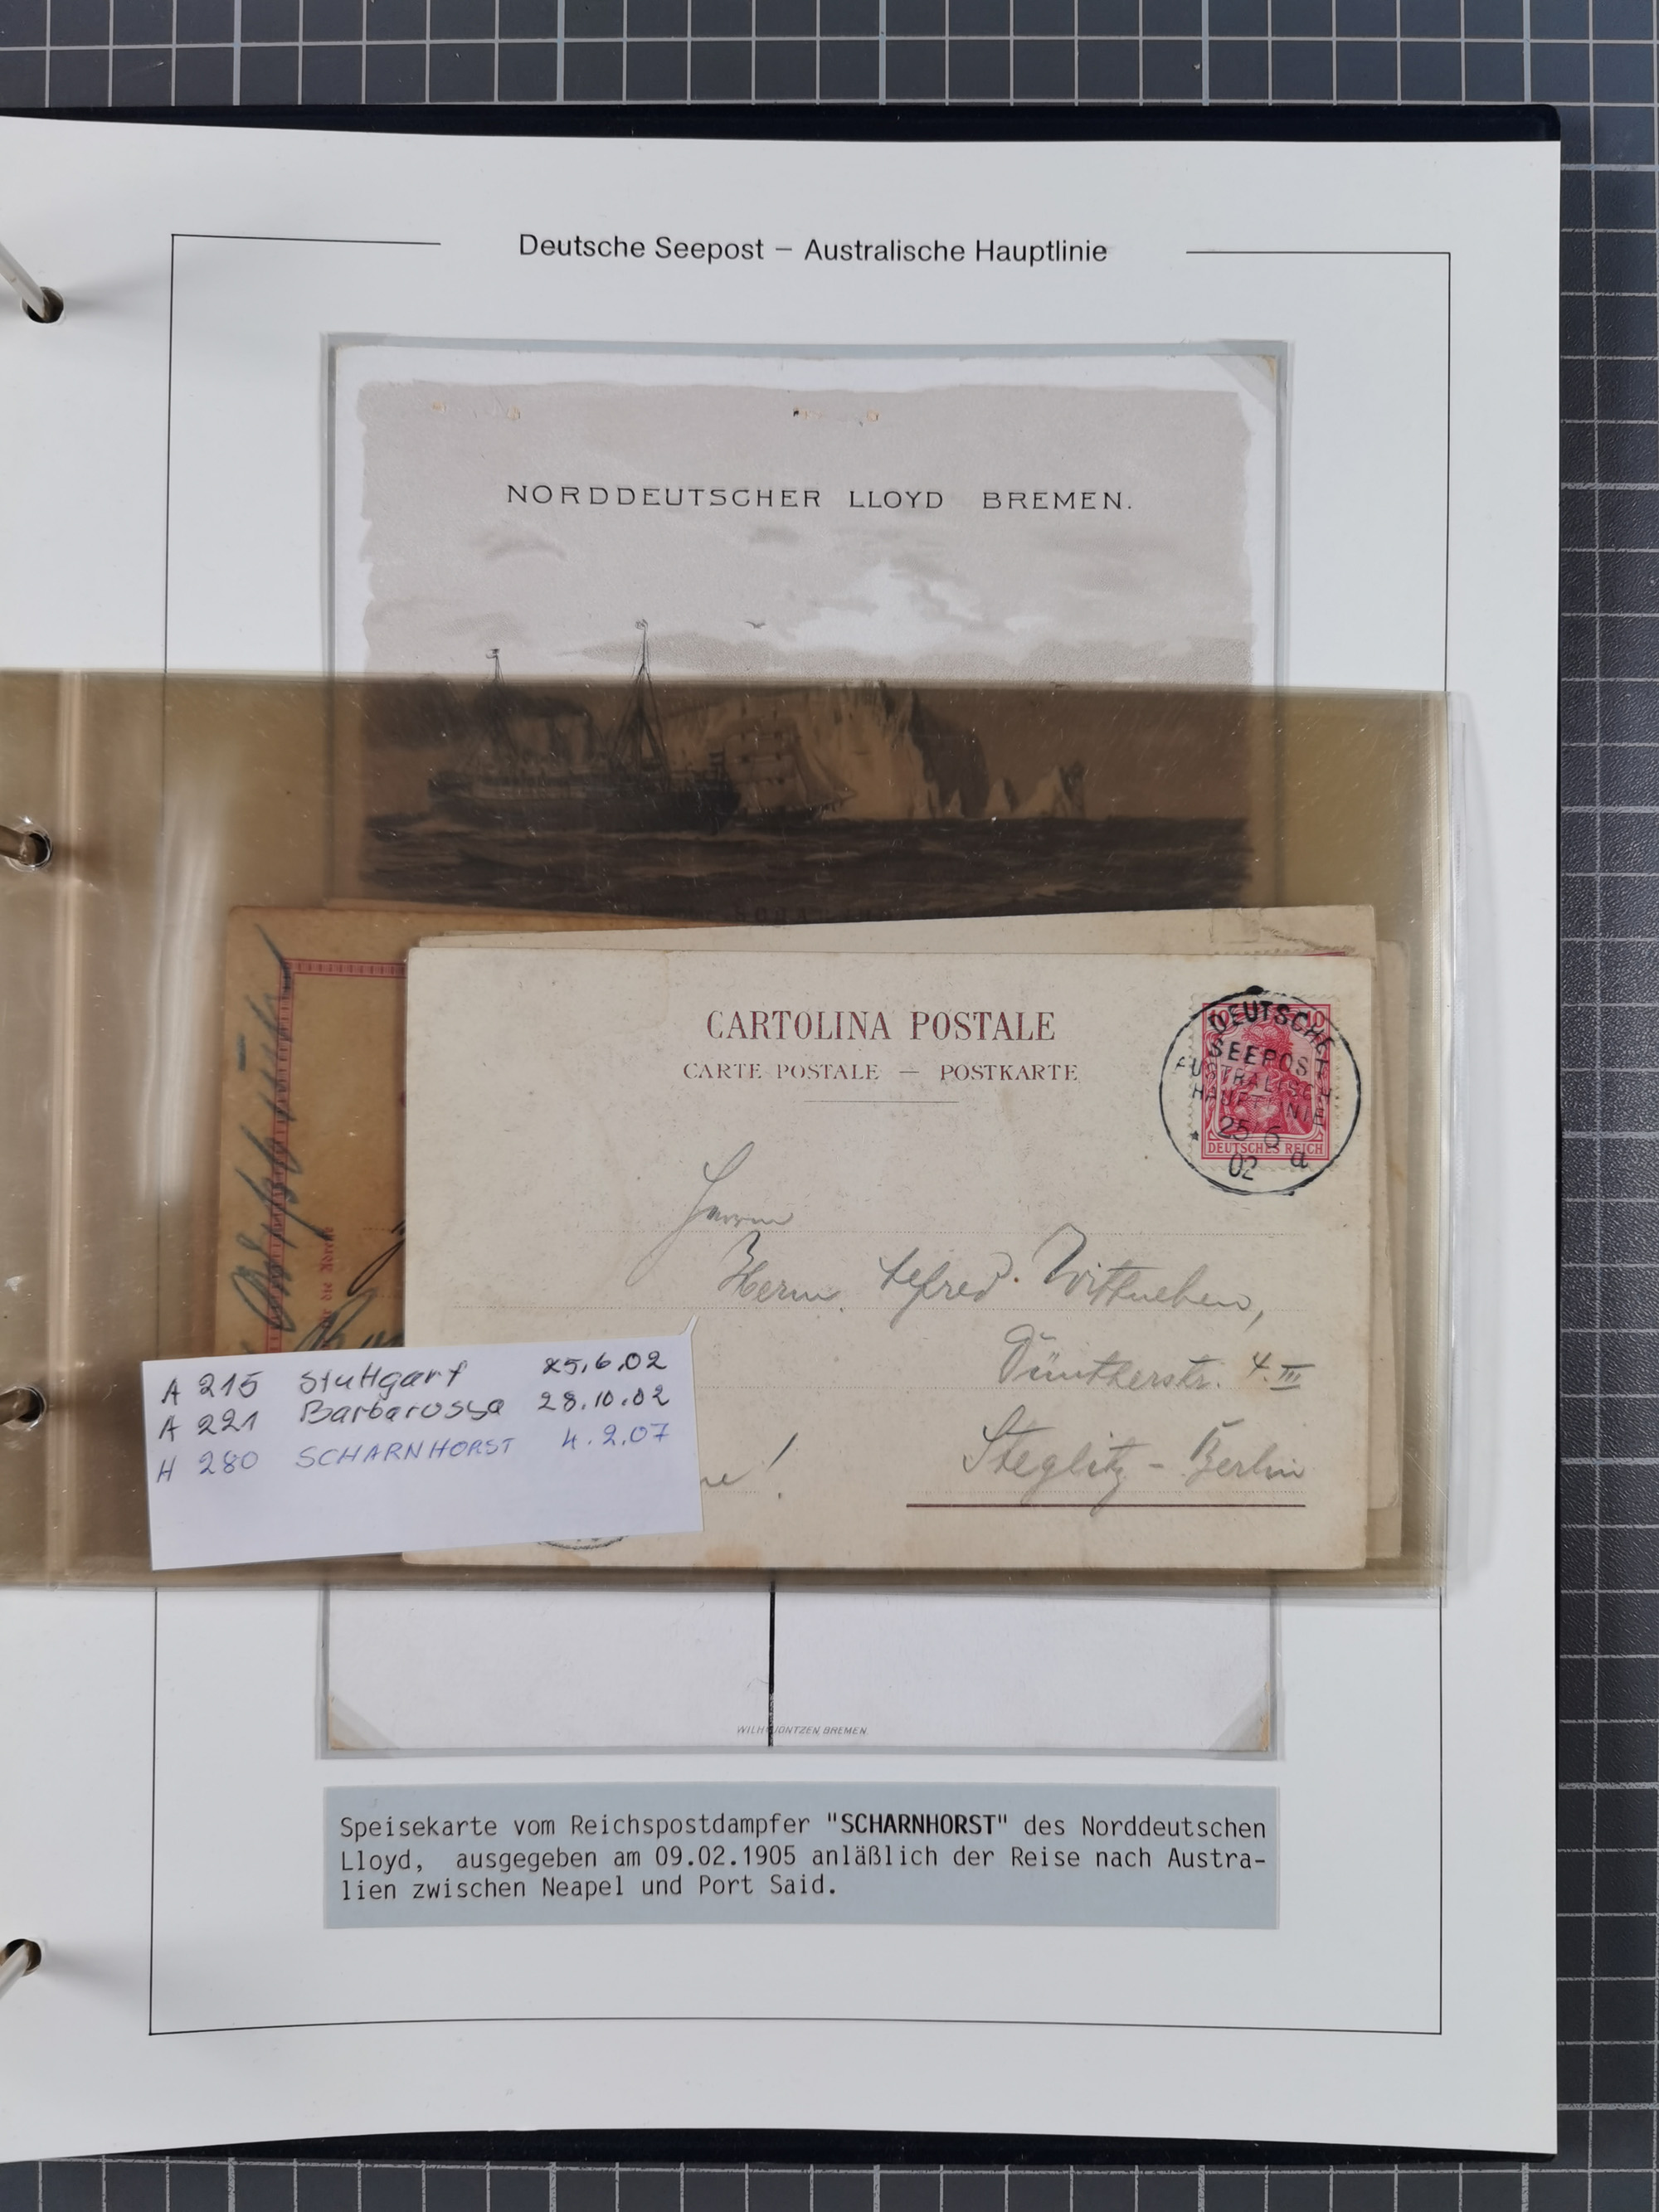 Deutsche Seepost – Australische Hauptlinie
NORDDEUTSCHER LLOYD BREMEN.
CARTOLINA POSTALE
CARTE POSTALE — POSTKARTE
10 10
DEUTSCHES REICH
DEUTSCHE
SEEPOST
AUSTRALISCHE
HAUPTLINIE
25 6
02 a
Herrn
Herrn Alfred Wittneben,
Steglitz - Berlin
4. III
für die Adresse
A 215 Stuttgart 25.6.02
A 221 Barbarossa 28.10.02
H 280 SCHARNHORST 4.2.07
WILH. JÖNTZEN, BREMEN
Speisekarte vom Reichspostdampfer "SCHARNHORST" des Norddeutschen
Lloyd, ausgegeben am 09.02.1905 anläßlich der Reise nach Austra-
lien zwischen Neapel und Port Said.